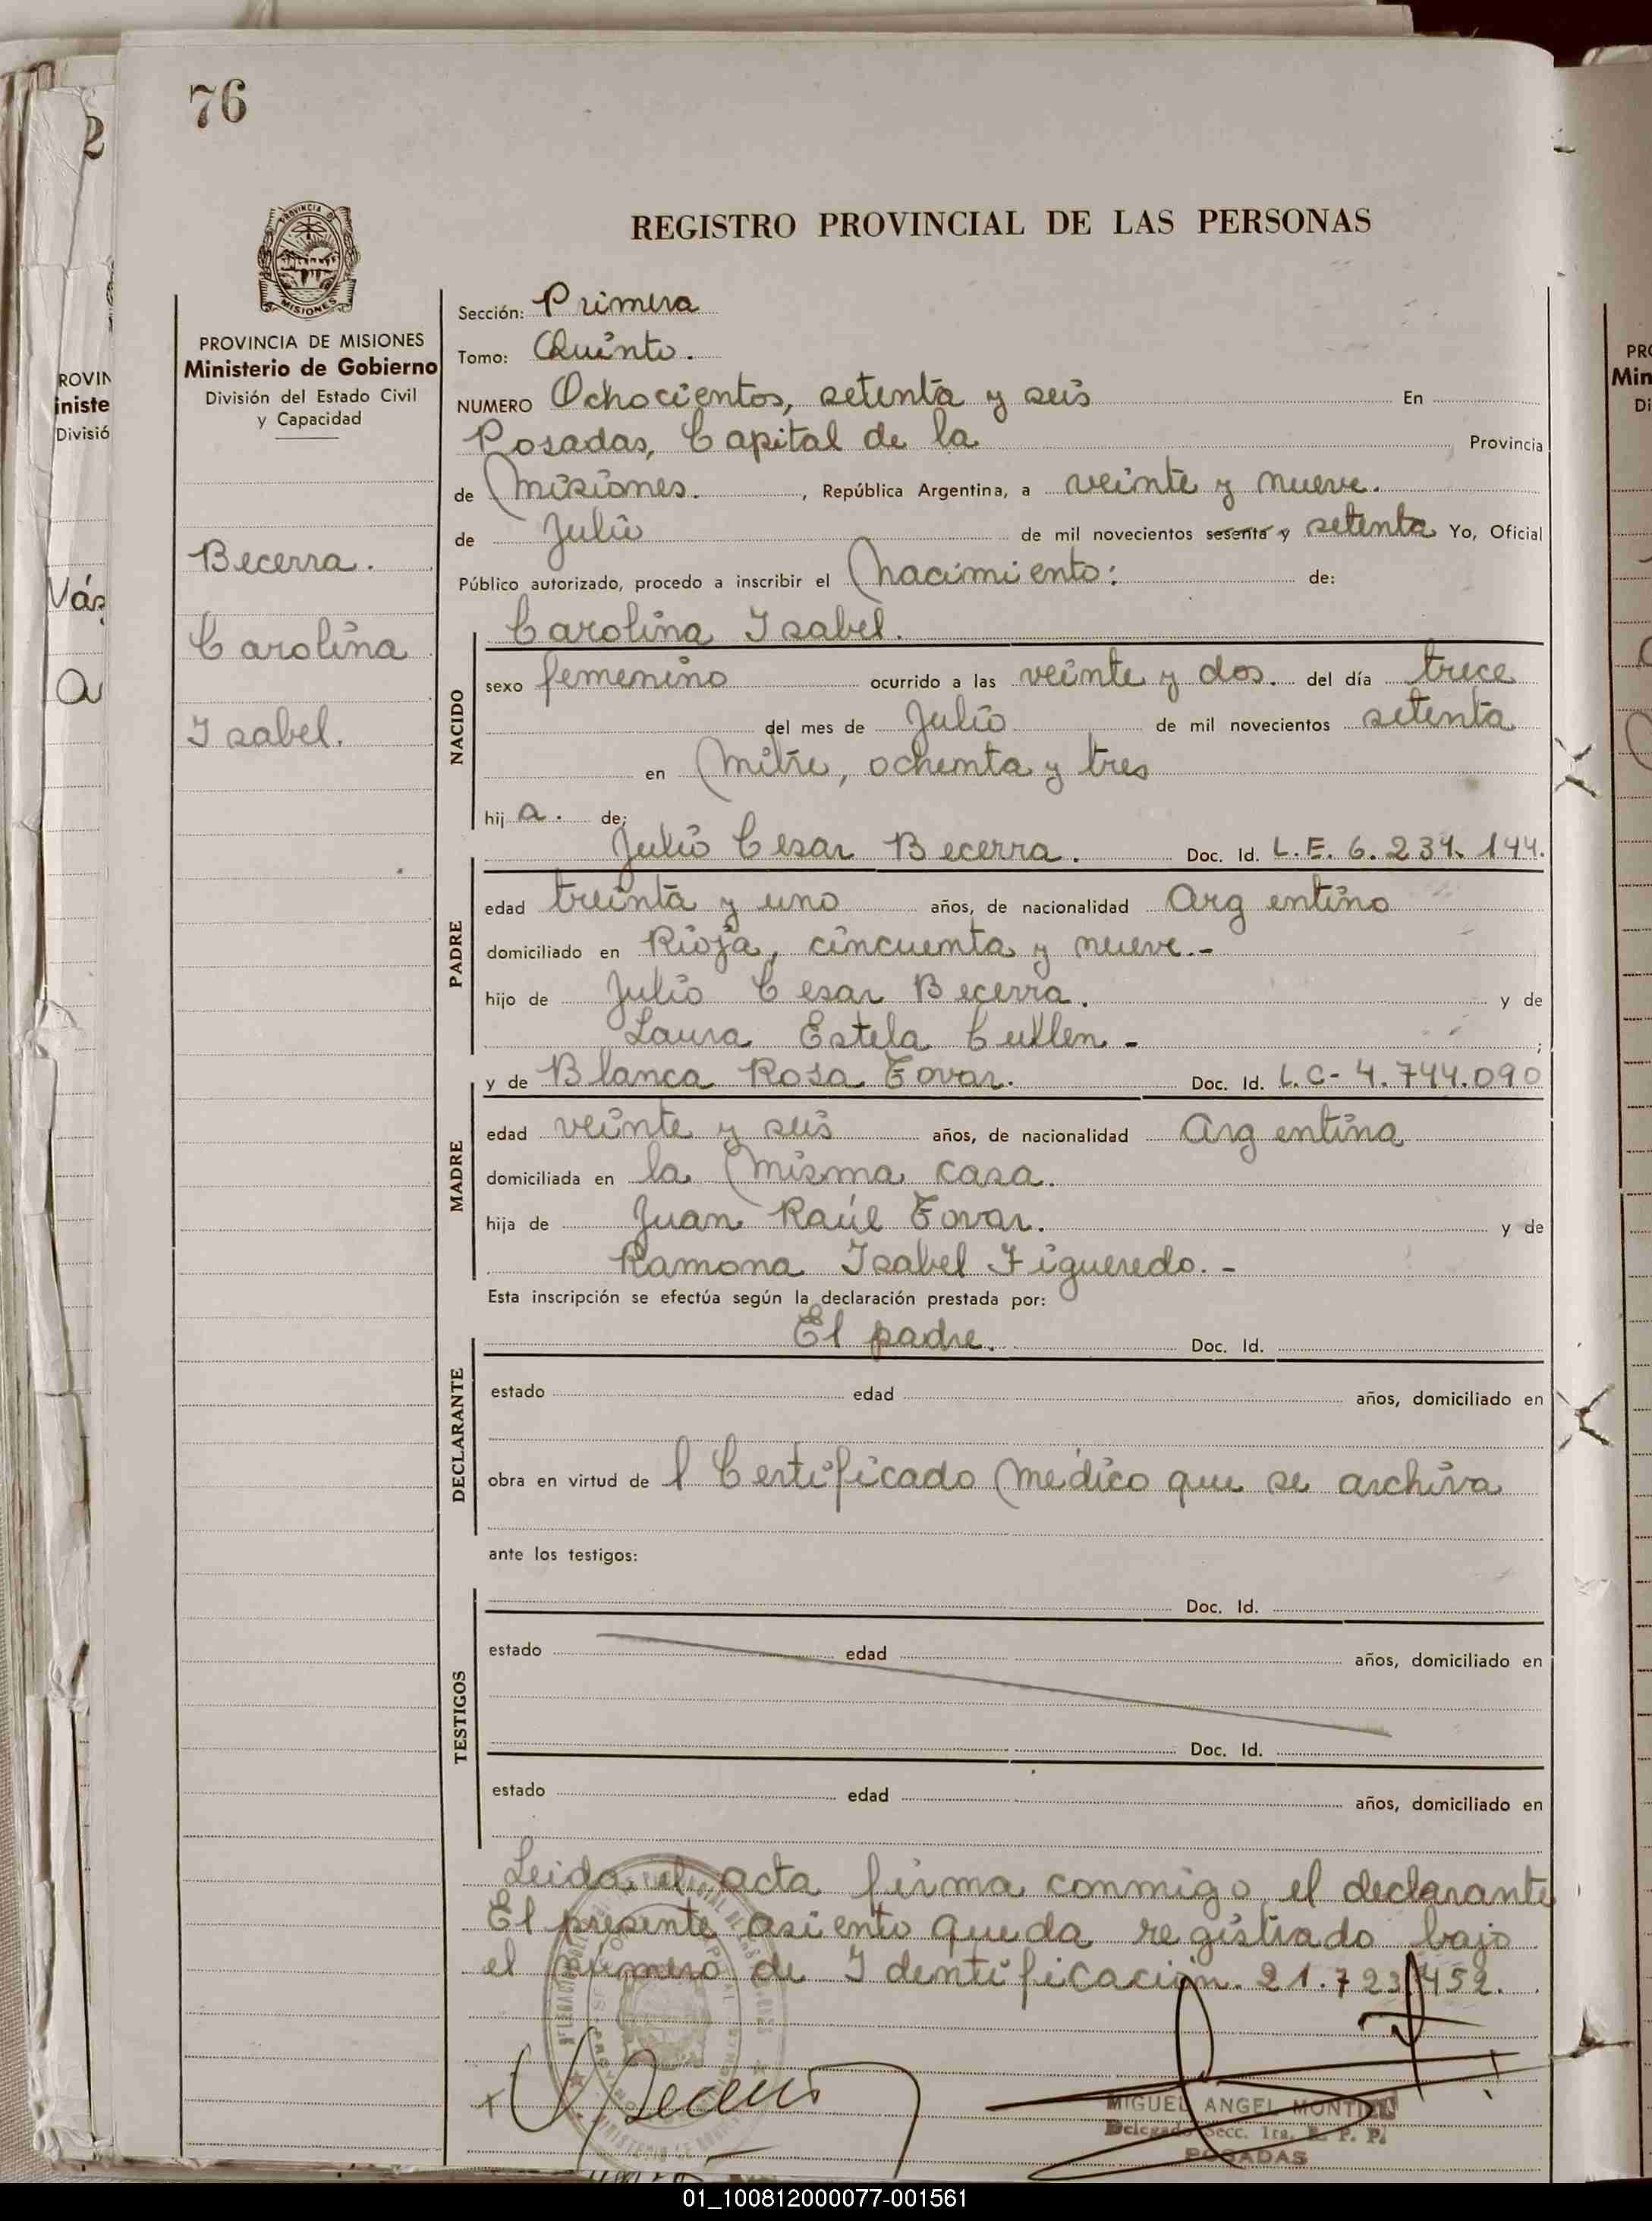 76
REGISTRO PROVINCIAL DE LAS PERSONAS
MISIONES
PROVINCIA DE MISIONES
Ministerio de Gobierno
División del Estado Civil
y Capacidad
Becerra.
Carolina
Isabel.
Sección: Primera
Tomo: Quinto.
NUMERO Ochocientos, setenta y seis En
Posadas, Capital de la Provincia
de Misiones. , República Argentina, a veinte y nueve.
de Julio de mil novecientos sesenta y setenta Yo, Oficial
Público autorizado, procedo a inscribir el nacimiento: de:
Carolina Isabel.
NACIDO
sexo femenino ocurrido a las veinte y dos. del día trece
del mes de Julio de mil novecientos setenta
en Mitre, ochenta y tres
hij a. de;
Julio Cesar Becerra. Doc. Id. L.E. 6.234.144.
PADRE
edad treinta y uno años, de nacionalidad Argentino
domiciliado en Rioja, cincuenta y nueve.-
hijo de Julio Cesar Becerra. y de
Laura Estela Cullen - ;
y de Blanca Rosa Tovar. Doc. Id. L.C- 4.744.090
MADRE
edad veinte y seis años, de nacionalidad Argentina
domiciliada en la misma casa.
hija de Juan Raúl Tovar. y de
Ramona Isabel Figueredo. -
Esta inscripción se efectúa según la declaración prestada por:
El padre. Doc. Id.
DECLARANTE
estado edad años, domiciliado en
obra en virtud de l Certificado médico que se archiva
ante los testigos:
Doc. Id.
TESTIGOS
estado edad años, domiciliado en
Doc. Id.
estado edad años, domiciliado en
Leida el acta firma conmigo el declarante
El presente asiento queda registrado bajo
el número de Identificación 21.723.452.
MIGUEL ANGEL MONTIEL
Delegado Secc. 1ra. R. P. P.
POSADAS
01_100812000077-001561